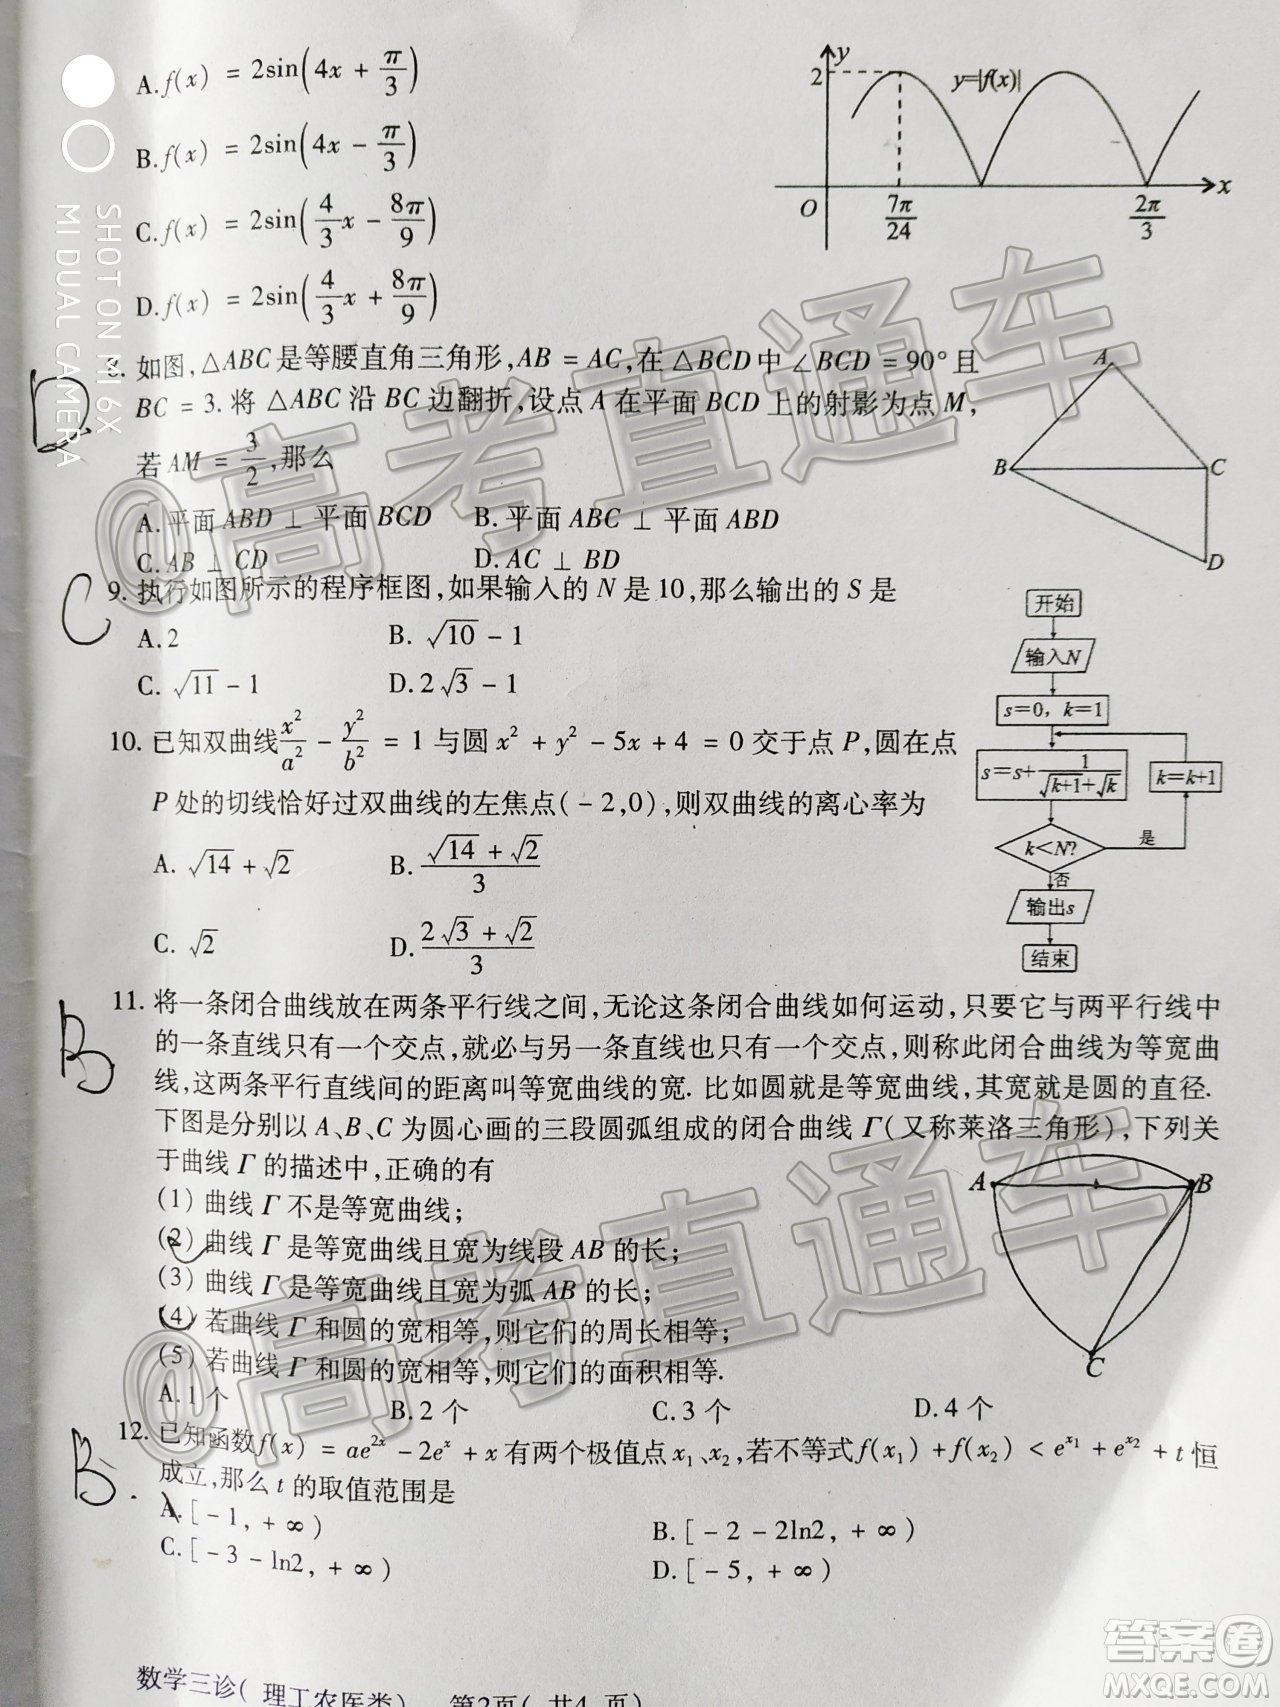 A. f(x) = 2sin(4x + π/3)
B. f(x) = 2sin(4x − π/3)
C. f(x) = 2sin(4/3 x − 8π/9)
D. f(x) = 2sin(4/3 x + 8π/9)
y
2
y=|f(x)|
O
7π/24
2π/3
x
8. 如图,△ABC是等腰直角三角形,AB = AC,在△BCD中∠BCD = 90°且
BC = 3. 将△ABC沿BC边翻折,设点A在平面BCD上的射影为点M,
若AM = 3/2,那么
A. 平面ABD ⊥ 平面BCD B. 平面ABC ⊥ 平面ABD
C. AB ⊥ CD D. AC ⊥ BD
A
B
C
D
D
9. 执行如图所示的程序框图,如果输入的N是10,那么输出的S是
A. 2 B. √10 − 1
C. √11 − 1 D. 2√3 − 1
C
开始
输入N
s=0, k=1
s=s+1/(√(k+1)+√k)
k=k+1
k<N?
是
否
输出s
结束
10. 已知双曲线x²/a² − y²/b² = 1与圆x² + y² − 5x + 4 = 0交于点P,圆在点
P处的切线恰好过双曲线的左焦点(−2,0),则双曲线的离心率为
A. √14 + √2 B. (√14 + √2)/3
C. √2 D. (2√3 + √2)/3
11. 将一条闭合曲线放在两条平行线之间,无论这条闭合曲线如何运动,只要它与两平行线中
的一条直线只有一个交点,就必与另一条直线也只有一个交点,则称此闭合曲线为等宽曲
线,这两条平行直线间的距离叫等宽曲线的宽. 比如圆就是等宽曲线,其宽就是圆的直径.
下图是分别以A、B、C为圆心画的三段圆弧组成的闭合曲线Γ(又称莱洛三角形),下列关
于曲线Γ的描述中,正确的有
(1) 曲线Γ不是等宽曲线;
(2) 曲线Γ是等宽曲线且宽为线段AB的长;
(3) 曲线Γ是等宽曲线且宽为弧AB的长;
(4) 若曲线Γ和圆的宽相等,则它们的周长相等;
(5) 若曲线Γ和圆的宽相等,则它们的面积相等.
A. 1个 B. 2个 C. 3个 D. 4个
B
A
B
C
12. 已知函数f(x) = ae^(2x) − 2e^x + x有两个极值点x₁、x₂,若不等式f(x₁) + f(x₂) < e^(x₁) + e^(x₂) + t恒
成立,那么t的取值范围是
A. [−1, +∞) B. [−2 − 2ln2, +∞)
C. [−3 − ln2, +∞) D. [−5, +∞)
B
数学三诊(理工农医类) 第2页(共4页)
SHOT ON MI 6X
MI DUAL CAMERA
@高考直通车
@高考直通车
答案圈
MXQE.COM